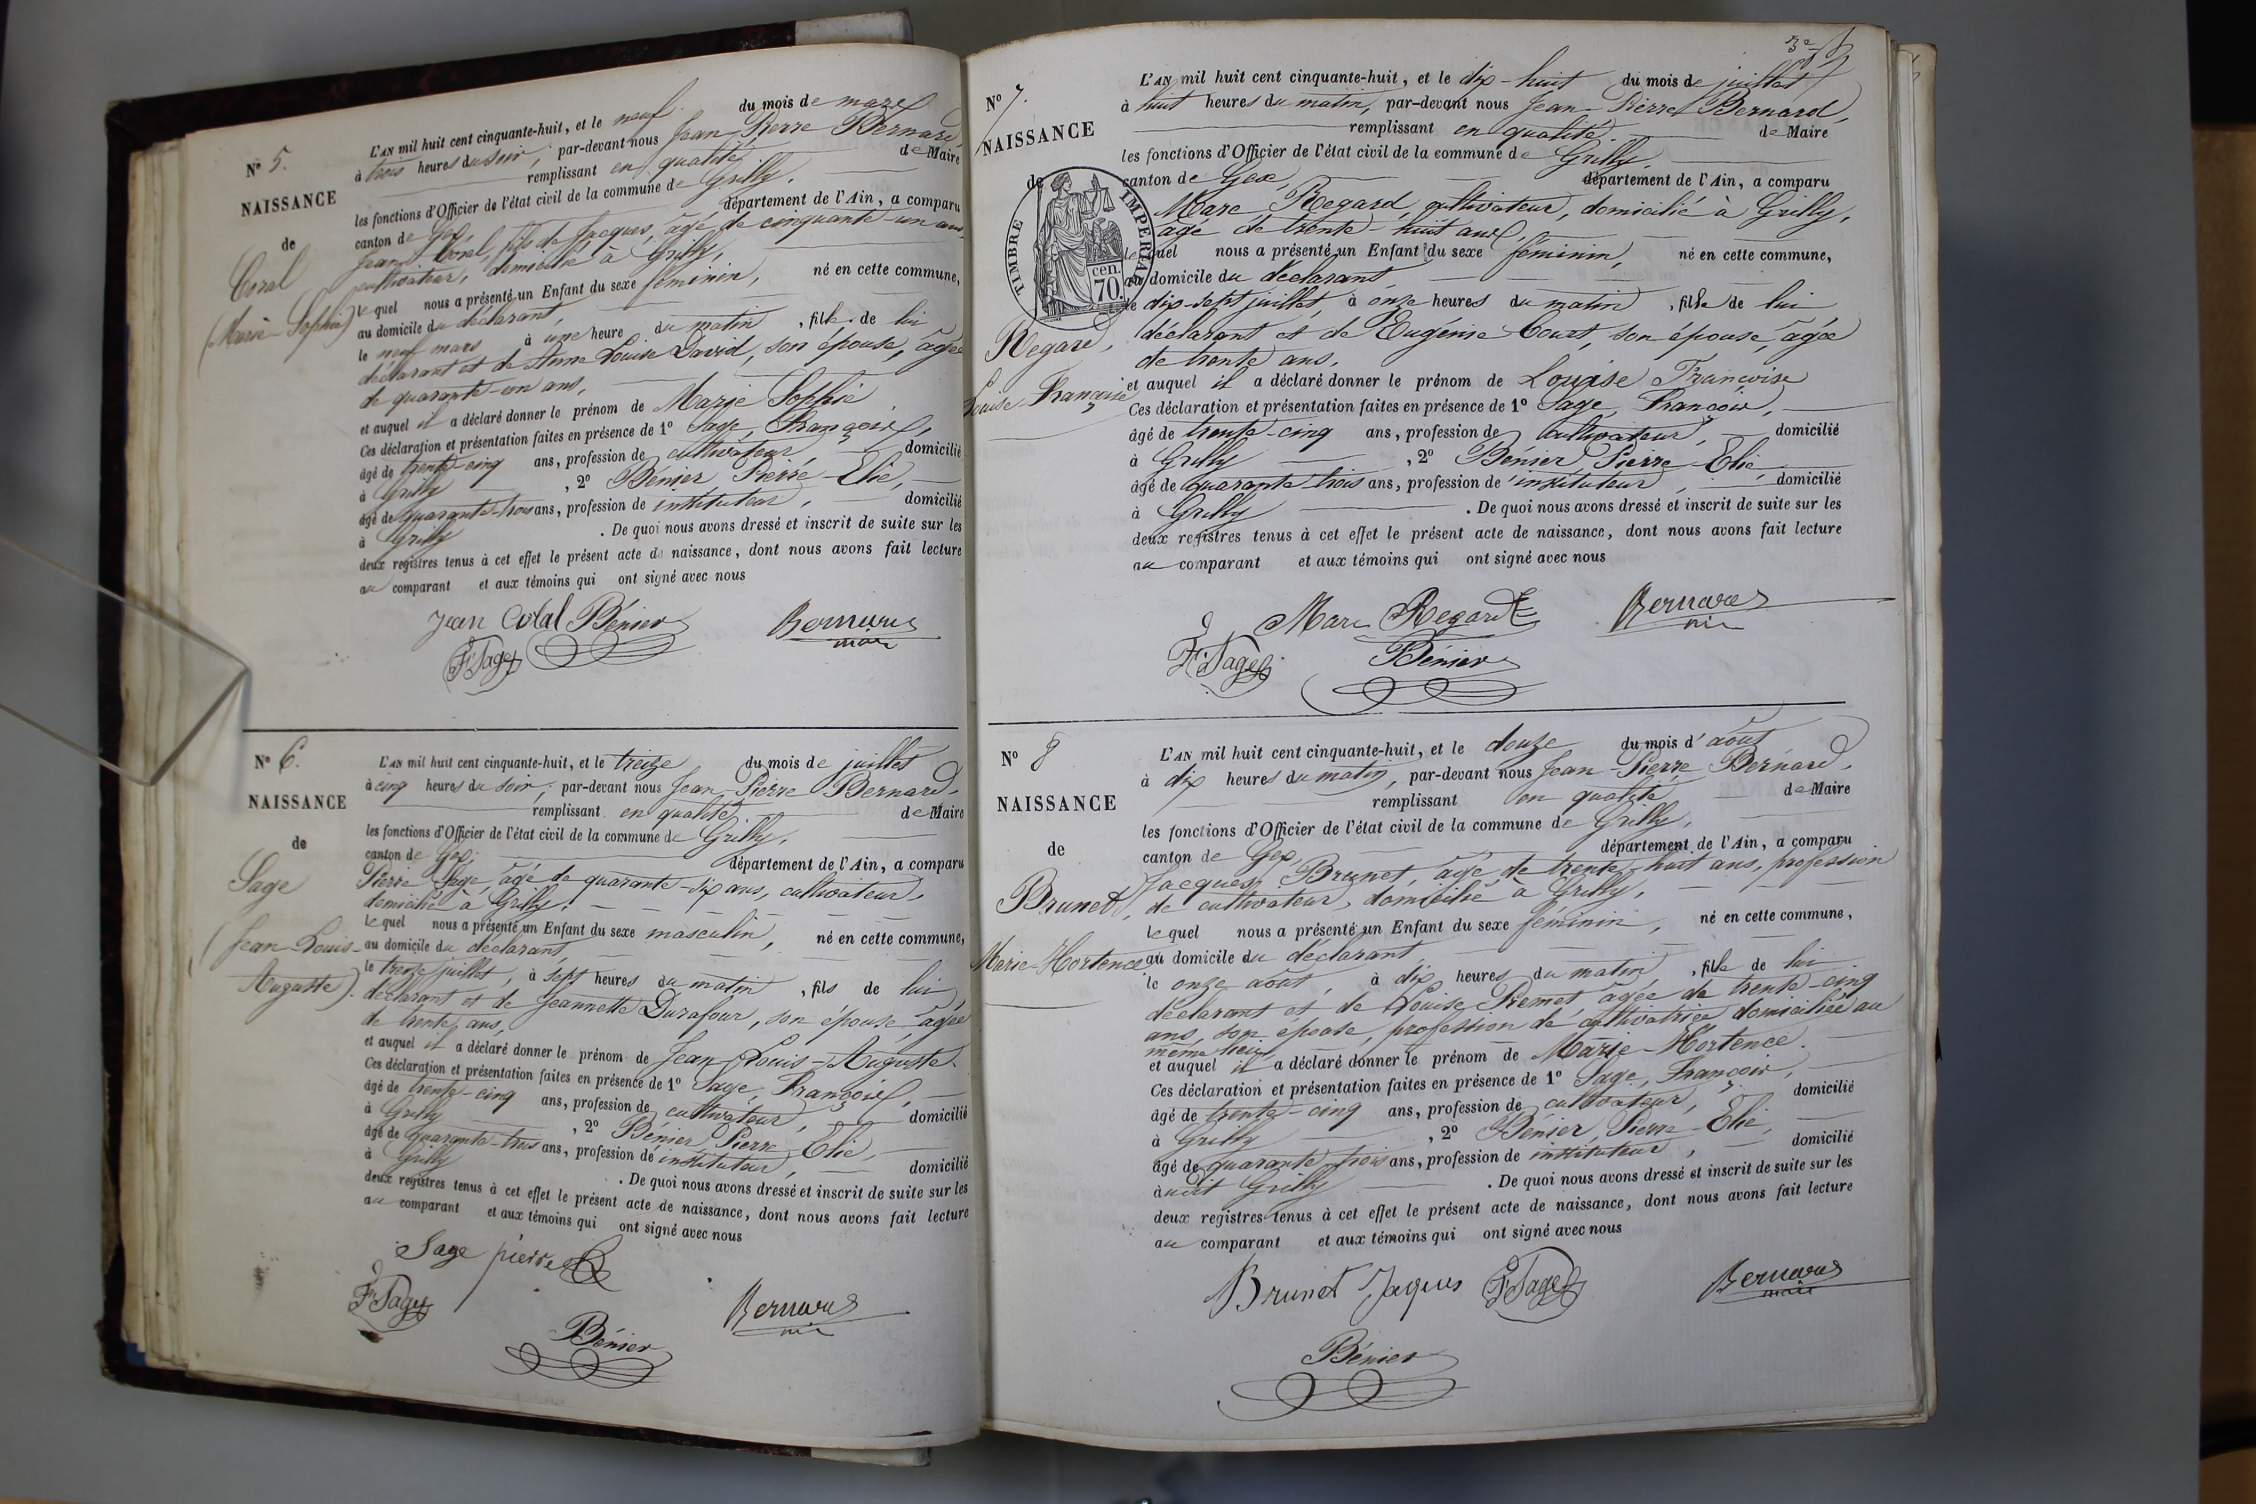 N° 5.
NAISSANCE
de
Coral
(Marie Sophie)
L'AN mil huit cent cinquante-huit, et le neuf du mois de mars
à trois heures du soir, par-devant nous Jean-Pierre Bernard,
remplissant en qualité de Maire
les fonctions d'Officier de l'état civil de la commune de Grilly,
canton de Gex, département de l'Ain, a comparu
Jean Coral, fils de Jacques, âgé de cinquante-un ans,
cultivateur, domicilié à Grilly,
lequel nous a présenté un Enfant du sexe féminin, né en cette commune,
au domicile du déclarant,
le neuf mars à une heure du matin, fille de lui
déclarant et de Anne Louise David, son épouse, âgée
de quarante-un ans,
et auquel il a déclaré donner le prénom de Marie Sophie
Ces déclaration et présentation faites en présence de 1° Sage, François,
âgé de trente-cinq ans, profession de cultivateur domicilié
à Grilly, 2° Bénier Pierre-Elie,
âgé de quarante-trois ans, profession de instituteur, domicilié
à Grilly. De quoi nous avons dressé et inscrit de suite sur les
deux registres tenus à cet effet le présent acte de naissance, dont nous avons fait lecture
au comparant et aux témoins qui ont signé avec nous
Jean Coral Bénier Bernard
maire
F. Sage
N° 6.
NAISSANCE
de
Sage
(Jean-Louis-
Auguste).
L'AN mil huit cent cinquante-huit, et le treize du mois de juillet
à cinq heures du soir, par-devant nous Jean-Pierre Bernard,
remplissant en qualité de Maire
les fonctions d'Officier de l'état civil de la commune de Grilly,
canton de Gex, département de l'Ain, a comparu
Pierre Sage, âgé de quarante-six ans, cultivateur,
domicilié à Grilly,
lequel nous a présenté un Enfant du sexe masculin, né en cette commune,
au domicile du déclarant,
le treize juillet, à sept heures du matin, fils de lui
déclarant et de Jeannette Durafour, son épouse, âgée
de trente ans,
et auquel il a déclaré donner le prénom de Jean-Louis-Auguste.
Ces déclaration et présentation faites en présence de 1° Sage, François,
âgé de trente-cinq ans, profession de cultivateur, domicilié
à Grilly, 2° Bénier Pierre Elie,
âgé de quarante-trois ans, profession de instituteur, domicilié
à Grilly. De quoi nous avons dressé et inscrit de suite sur les
deux registres tenus à cet effet le présent acte de naissance, dont nous avons fait lecture
au comparant et aux témoins qui ont signé avec nous
Sage pierre
F. Sage Bernard
Bénier
3e
N° 7.
NAISSANCE
de
TIMBRE IMPERIAL
70 cen.
Regard,
Louise-Françoise
L'AN mil huit cent cinquante-huit, et le dix-huit du mois de juillet
à huit heures du matin, par-devant nous Jean-Pierre Bernard,
remplissant en qualité de Maire
les fonctions d'Officier de l'état civil de la commune de Grilly,
canton de Gex, département de l'Ain, a comparu
Marc Regard, cultivateur, domicilié à Grilly,
âgé de trente-huit ans,
lequel nous a présenté un Enfant du sexe féminin, né en cette commune,
au domicile du déclarant,
le dix-sept juillet, à onze heures du matin, fille de lui
déclarant et de Eugénie Court, son épouse, âgée
de trente ans,
et auquel il a déclaré donner le prénom de Louise Françoise
Ces déclaration et présentation faites en présence de 1° Sage, François,
âgé de trente-cinq ans, profession de cultivateur, domicilié
à Grilly, 2° Bénier, Pierre-Elie,
âgé de quarante-trois ans, profession de instituteur, domicilié
à Grilly. De quoi nous avons dressé et inscrit de suite sur les
deux registres tenus à cet effet le présent acte de naissance, dont nous avons fait lecture
au comparant et aux témoins qui ont signé avec nous
Marc Regard Bernard
F. Sage Bénier
N° 8
NAISSANCE
de
Brunet,
Marie-Hortence
L'AN mil huit cent cinquante-huit, et le douze du mois d'août
à dix heures du matin, par-devant nous Jean-Pierre Bernard,
remplissant en qualité de Maire
les fonctions d'Officier de l'état civil de la commune de Grilly,
canton de Gex, département de l'Ain, a comparu
Jacques Brunet, âgé de trente-huit ans, profession
de cultivateur, domicilié à Grilly,
lequel nous a présenté un Enfant du sexe féminin, né en cette commune,
au domicile du déclarant,
le onze août, à dix heures du matin, fille de lui
déclarant et de Louise Premet âgée de trente-cinq
ans, son épouse, profession de cultivatrice domiciliée au
même lieu,
et auquel il a déclaré donner le prénom de Marie-Hortence.
Ces déclaration et présentation faites en présence de 1° Sage, François,
âgé de trente-cinq ans, profession de cultivateur, domicilié
à Grilly, 2° Bénier, Pierre-Elie,
âgé de quarante-trois ans, profession de instituteur, domicilié
audit Grilly. De quoi nous avons dressé et inscrit de suite sur les
deux registres tenus à cet effet le présent acte de naissance, dont nous avons fait lecture
au comparant et aux témoins qui ont signé avec nous
Brunet Jaques F. Sage Bernard
maire
Bénier